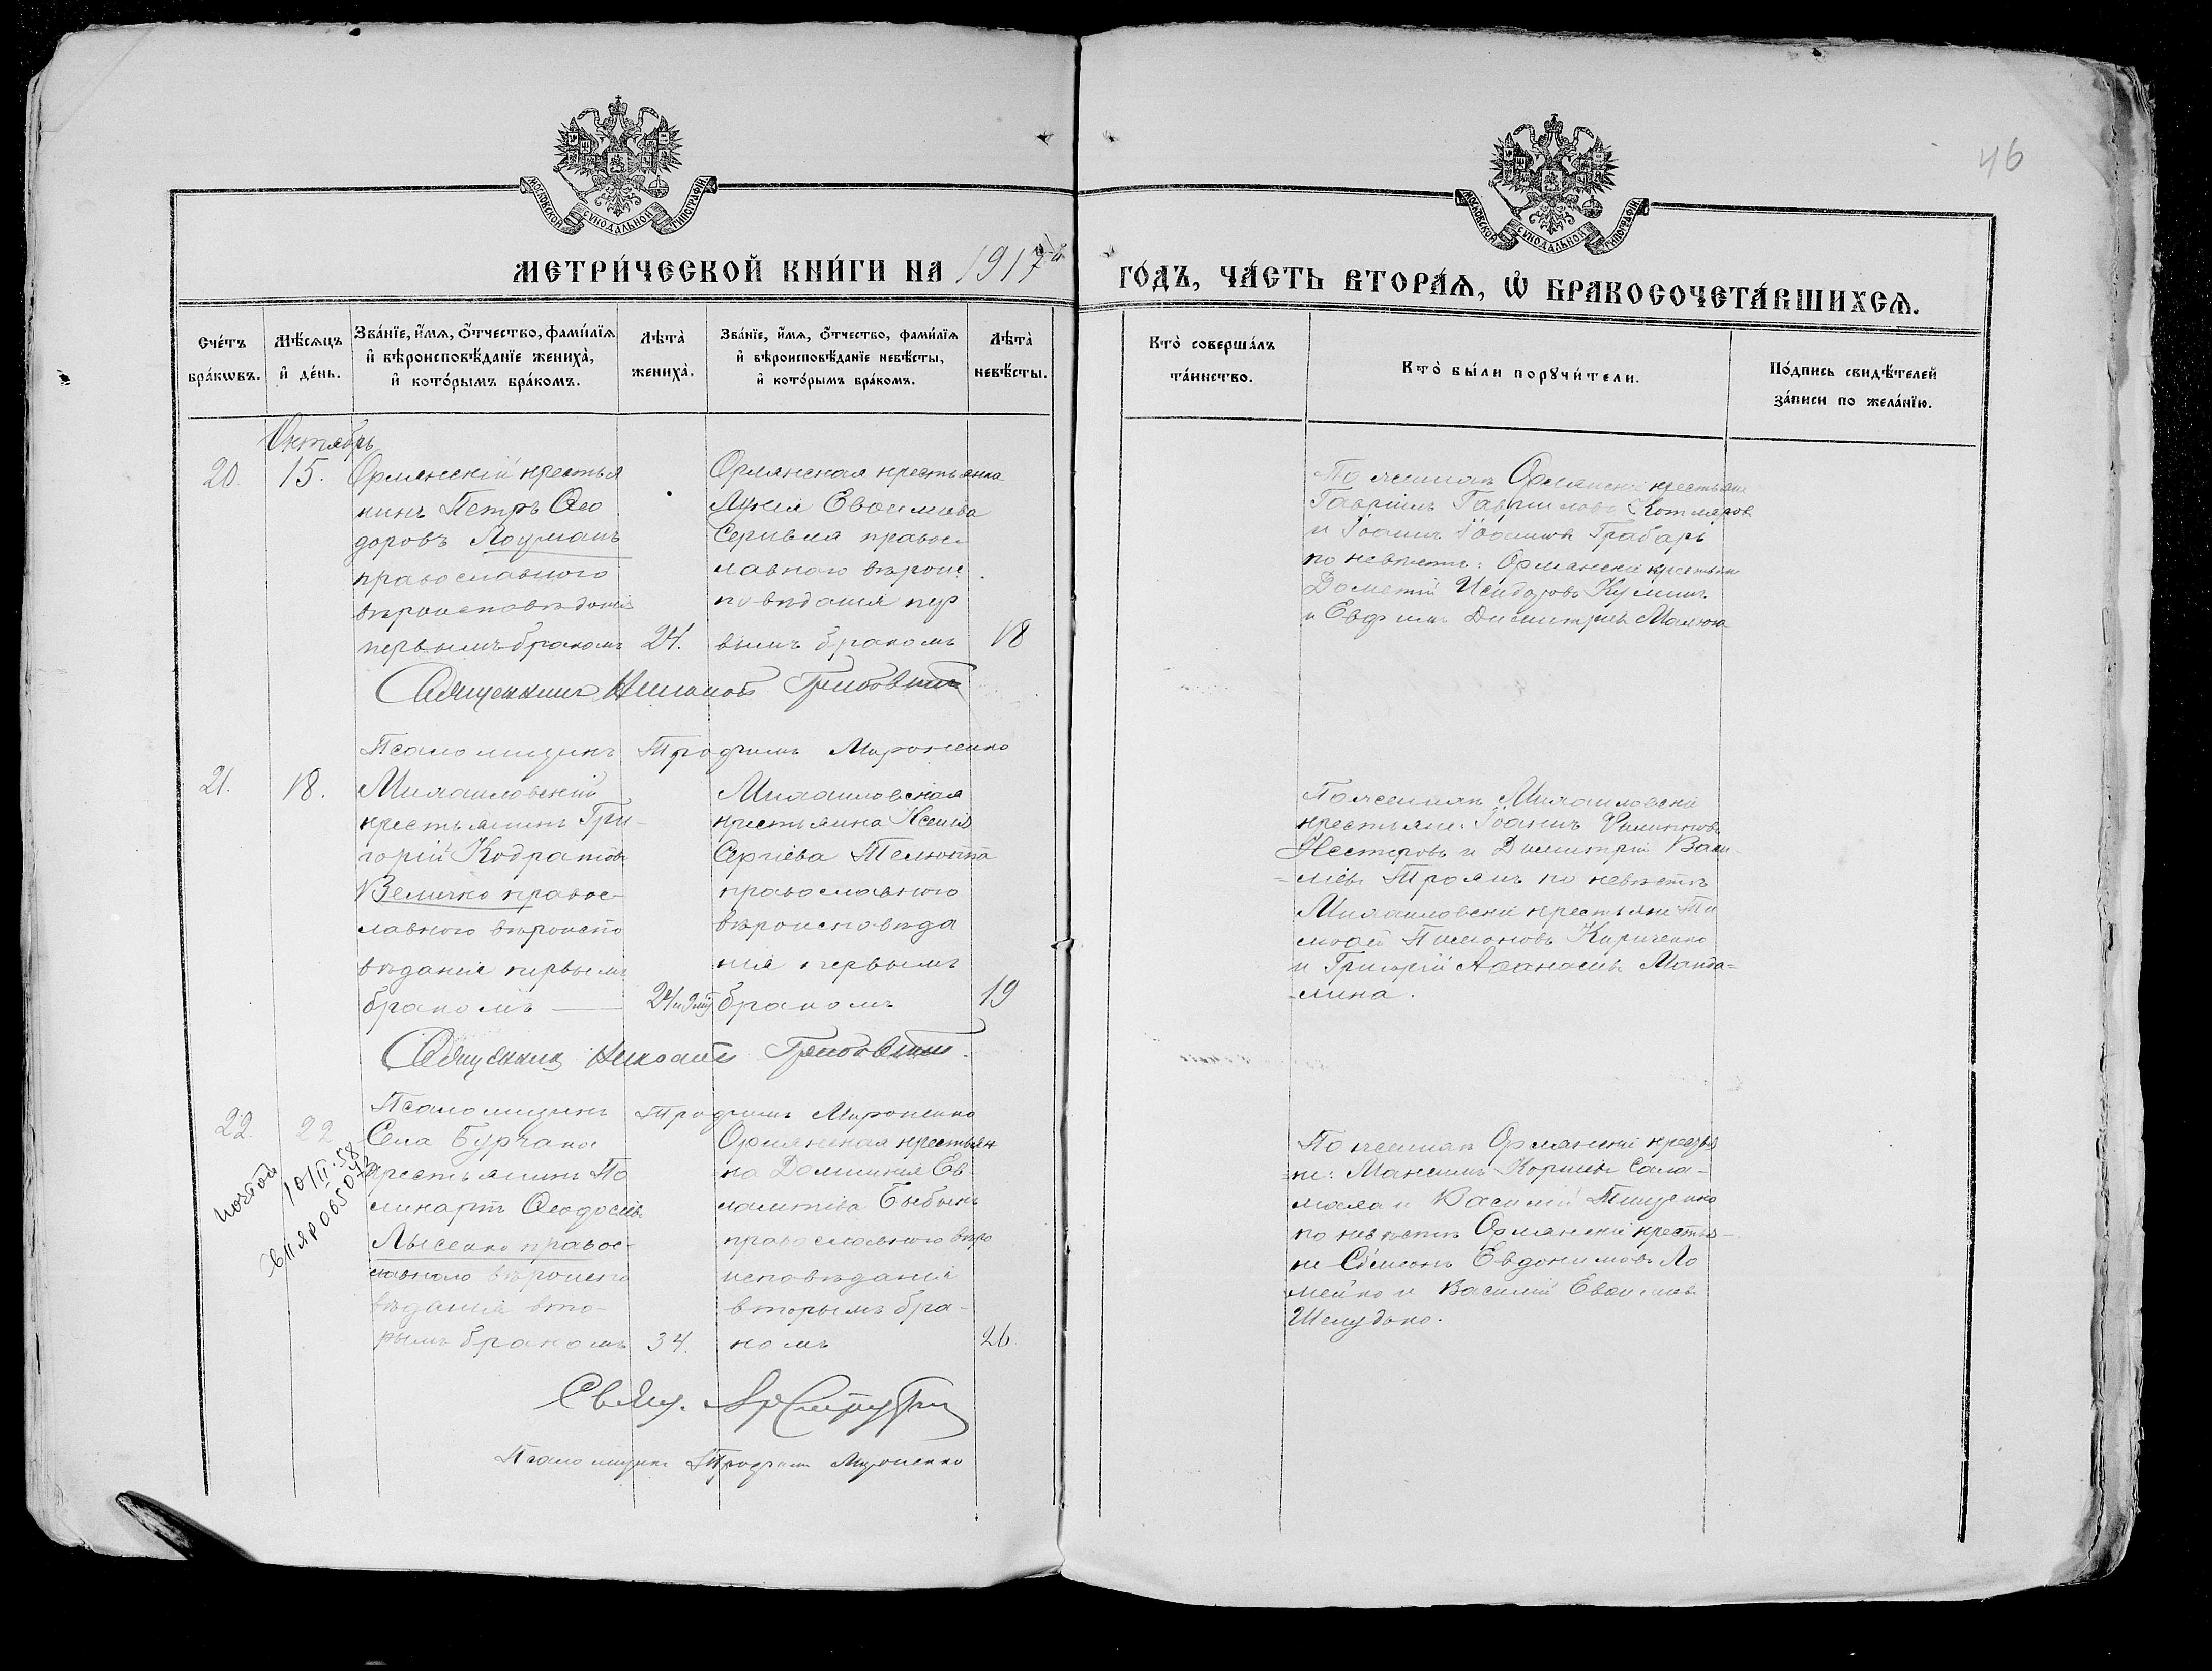 46
МОСКОВСКОЙ СѴНОДАЛЬНОЙ ТИПОГРАФІИ
МОСКОВСКОЙ СѴНОДАЛЬНОЙ ТИПОГРАФІИ
МЕТРИ́ЧЕСКОЙ КНИ́ГИ НА 1917й
ГО́ДЪ, ЧА́СТЬ ВТОРА́Ѧ, Ѡ҆ БРАКОСОЧЕТА́ВШИХСѦ.
Сче́тъ бра́кѡвъ.
Мѣ́сѧцъ и҆ де́нь.
Зва́нїе, и҆́мѧ, ѻ҆́тчество, фами́лїѧ
и҆ вѣроисповѣ́данїе жениха̀,
и҆ кото́рымъ бра́комъ.
Лѣта̀ жениха̀.
Зва́нїе, и҆́мѧ, ѻ҆́тчество, фами́лїѧ
и҆ вѣроисповѣ́данїе невѣ́сты,
и҆ кото́рымъ бра́комъ.
Лѣта̀ невѣ́сты.
Кто̀ соверша́лъ
та́инство.
Кто̀ бы́ли порꙋчи́тели.
По́дпись свидѣ́телей
за́писи по жела́нїю.
Октябрь
20
15.
Орлянскій крестья
нинъ Петръ Ѳео
доровъ Лоуманъ
православного
вѣроисповѣданія
первымъ бракомъ
24.
Орлянская крестьянка
Евѳимова
правос
лавного вѣроис
повѣданія пер
вымъ бракомъ
18
Священникъ Николай
Псаломщикъ Трофимъ Мироненко
По женихѣ Орлянскіе крестьяне
Гавріилъ Гавриловъ Котляров
и Іоаннъ Іоанновъ Грабарь
по невѣстѣ: Орлянскіе крестьяне
Дометій Исидоровъ
и Евфимъ Димитріевъ
21.
18.
Михаиловскій
крестьянинъ Гри-
горій Кодратовъ
Величко правос-
лавного вѣроиспо
вѣданія первымъ
бракомъ
24
Михаиловская
крестьянка Ксенія
Сергіева
православного
вѣроисповѣда
нія первымъ
бракомъ
19
Священникъ Николай
Псаломщикъ Трофимъ Мироненко
По женихѣ Михаиловскіе
крестьяне: Іоаннъ Филипповъ
Нестеровъ и Димитрій Васи-
-ліевъ Троянъ по невѣстѣ
Михаиловскіе крестьяне Ти
моѳей Пимоновъ Кириченко
и Григорій Аѳанасіевъ Манда-
-лина.
22.
22
почтой
10/II-58
Села Бурчака
крестьянинъ По
ликарпъ Ѳеодосіевъ
Лысенко правос-
лавного вѣроиспо
вѣданія вто-
рымъ бракомъ
34.
Орлянская крестьян
ка Домникія Ев-
православного вѣро
исповѣданія
вторымъ бра-
комъ
26.
Свящ.
Псаломщикъ Трофимъ Мироненко
По женихѣ Орлянскіе крестья
не: Максимъ Сала-
и Василій Тищенко
по невѣстѣ Орлянскіе крестья-
не Симеонъ Евдокимовъ Ло
мейко и Василій Евѳиміевъ
Шелудько.